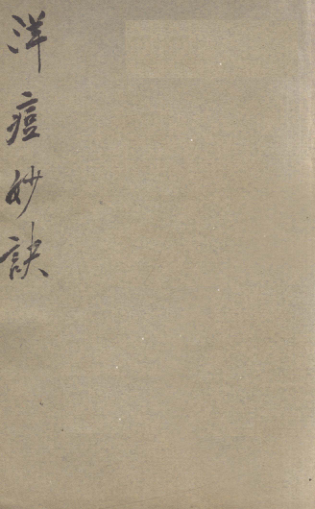 洋痘妙訣